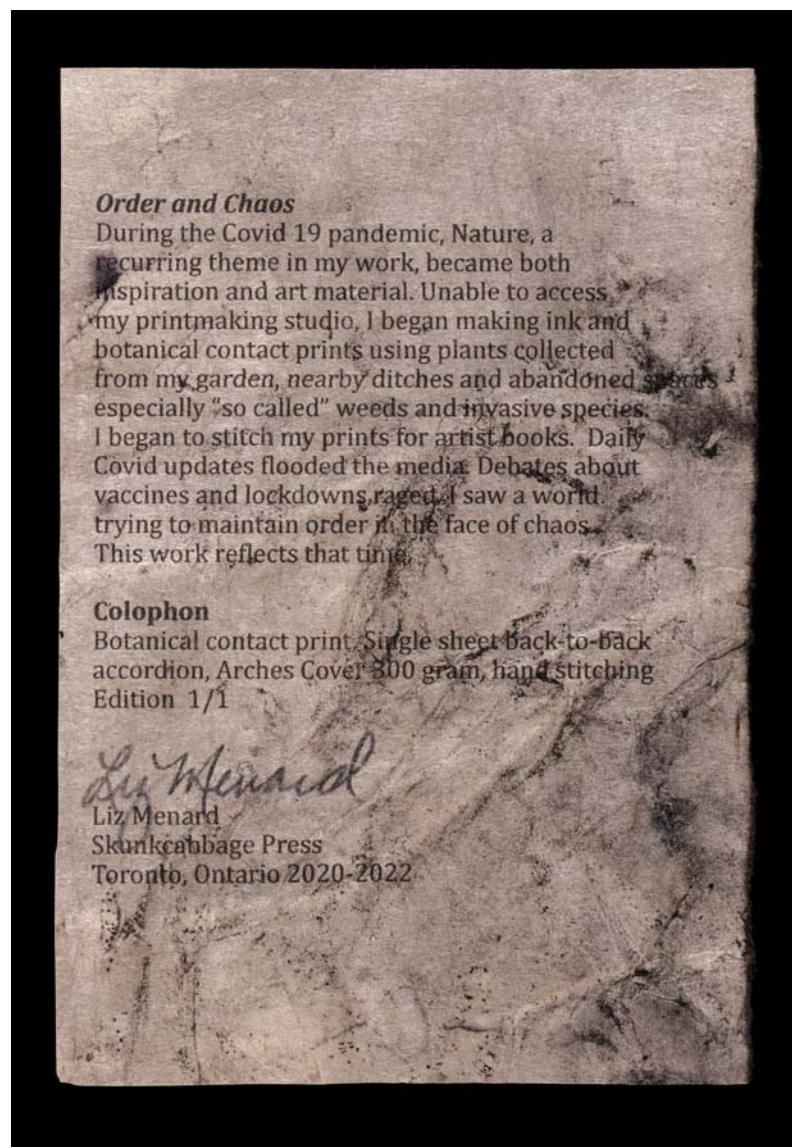 Order and Chaos
During the Covid 19 pandemic, Nature, a
recurring theme in my work, became both
inspiration and art material. Unable to access
my printmaking studio, I began making ink and
botanical contact prints using plants collected
from my garden, nearby ditches and abandoned spaces
especially “so called” weeds and invasive species.
I began to stitch my prints for artist books.  Daily
Covid updates flooded the media. Debates about
vaccines and lockdowns raged. I saw a world
trying to maintain order in the face of chaos.
This work reflects that time.
Colophon
Botanical contact print. Single sheet back-to-back
accordion, Arches Cover 300 gram, hand stitching
Edition  1/1
Liz Menard
Liz Menard
Skunkcabbage Press
Toronto, Ontario 2020-2022